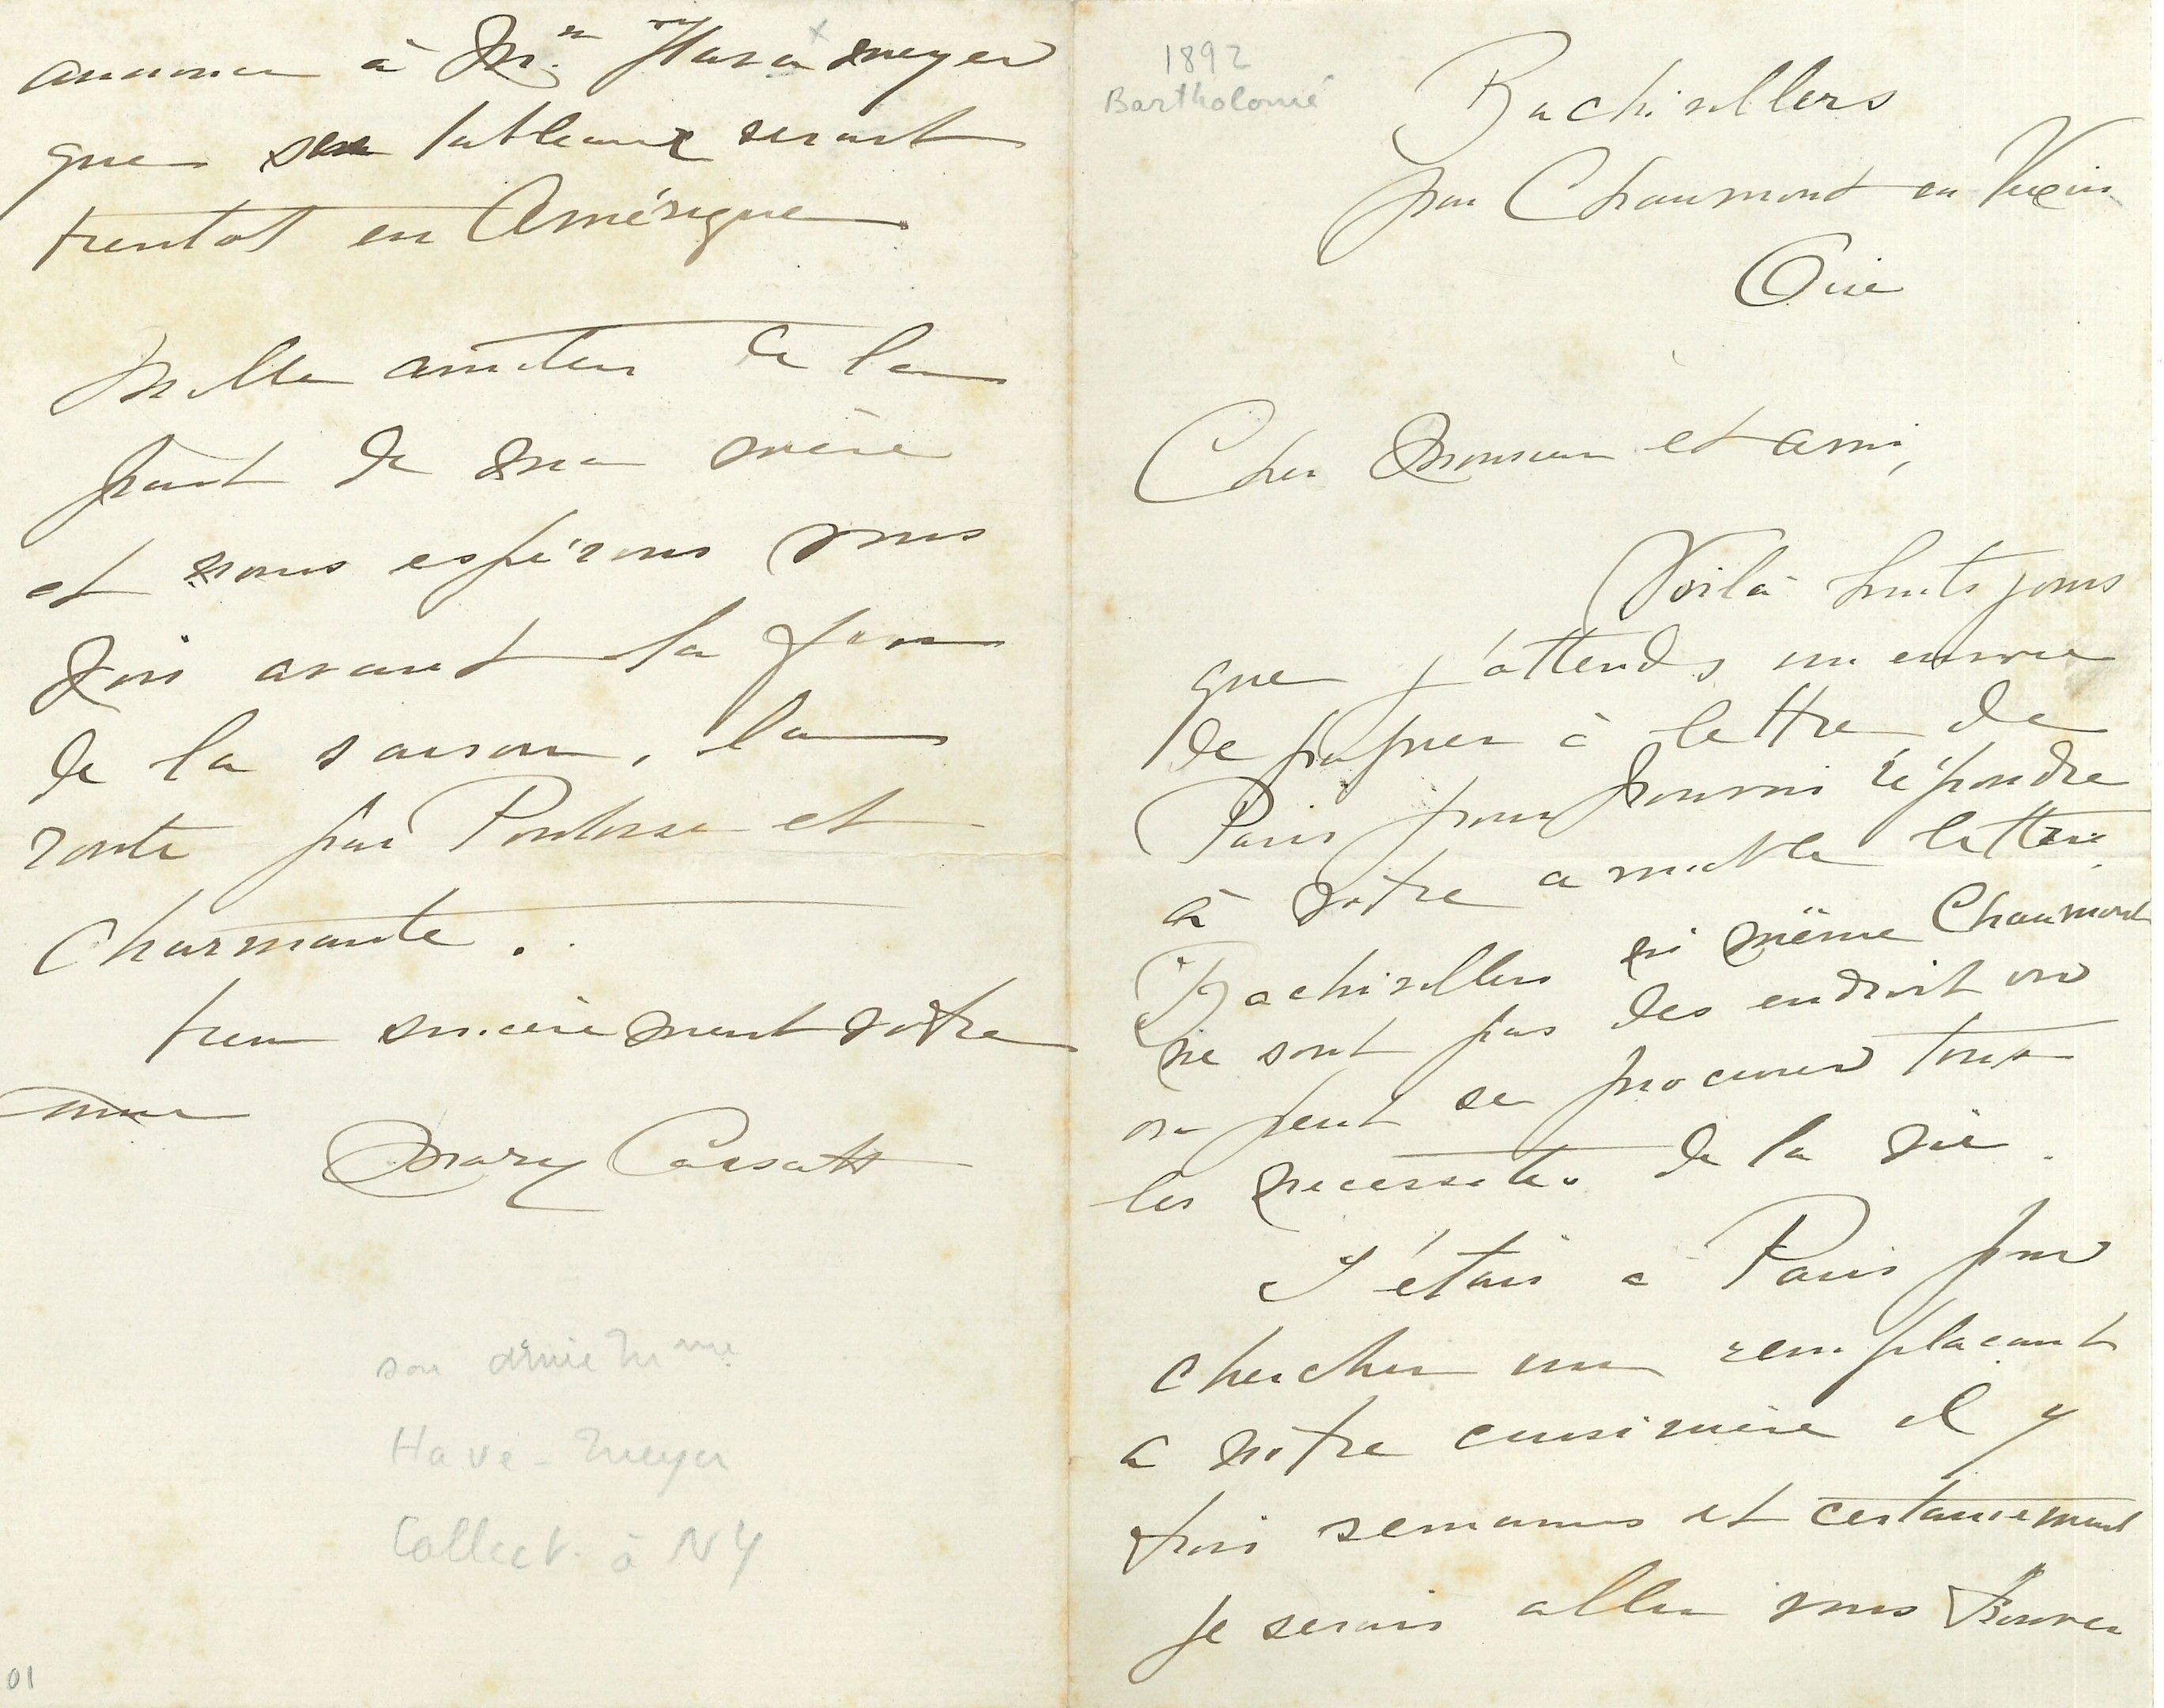 1892
Bartholomé
Bachivillers
par Chaumont en Vexin
Oise
Cher Monsieur et ami,
Voilà huits jours
que j'attends un envoie
de papier à lettre de
Paris pour pouvoir répondre
à votre amiable lettre.
Bachivillers ni même Chaumont
ne sont pas des endroit ou
on peut se procurer tous
les necessités de la vie.
J'étais à Paris pour
chercher un remplacant
a nôtre cuisinière il y
trois semaines et certainement
je serais allée vous trouver
annoncer à Mr. Havemeyer
que ses tableaux seront
bientot en Amérique
Mille amities de la
part de ma mère
et nous espérons vous
voir avant la fin
de la saison, la
route par Pontoise et
charmante.
bien sincèrement votre
amie
Mary Cassatt
son amie Mme
Have-meyer
Collect. à NY
01